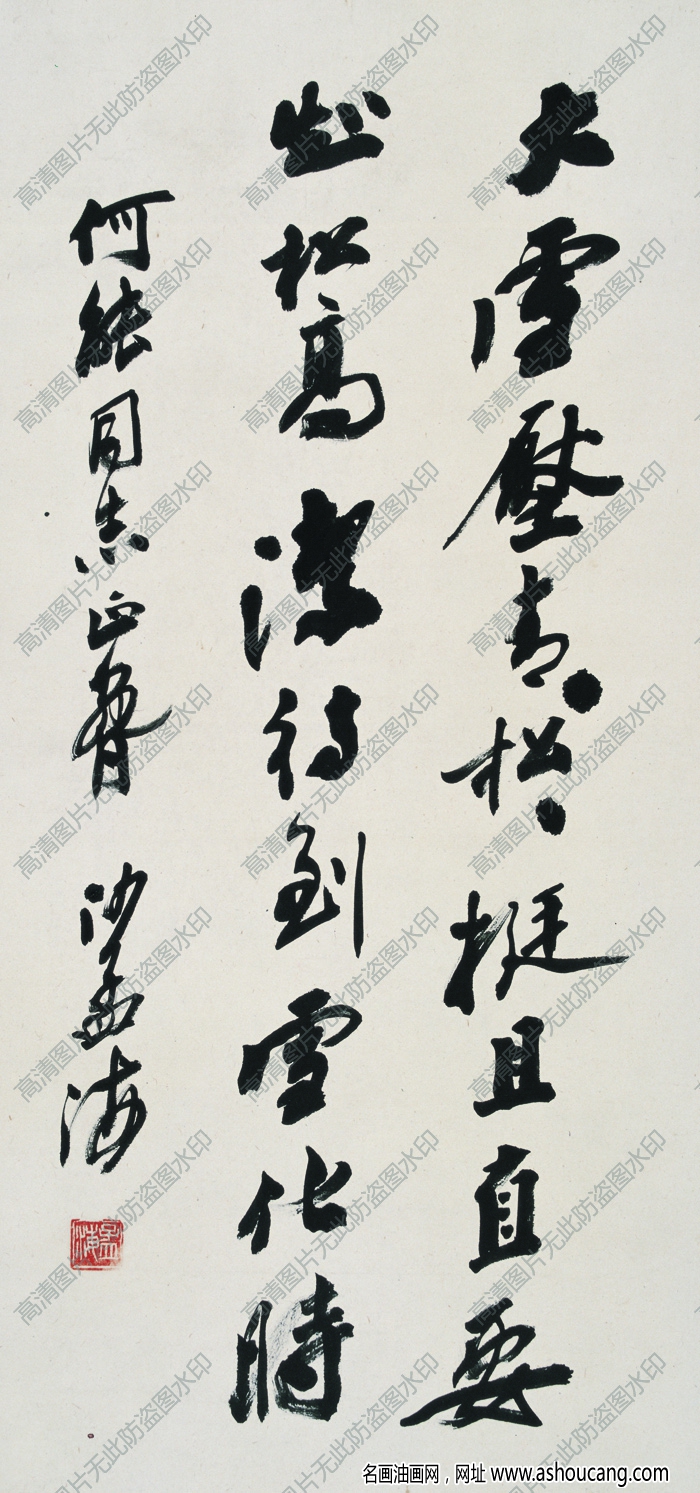 大雪壓青松挺且直要
知松高潔待到雪化時
何能同志正
沙孟海
孟海
高清图片无此防盗图水印
名画油画网，网址 www.ashoucang.com